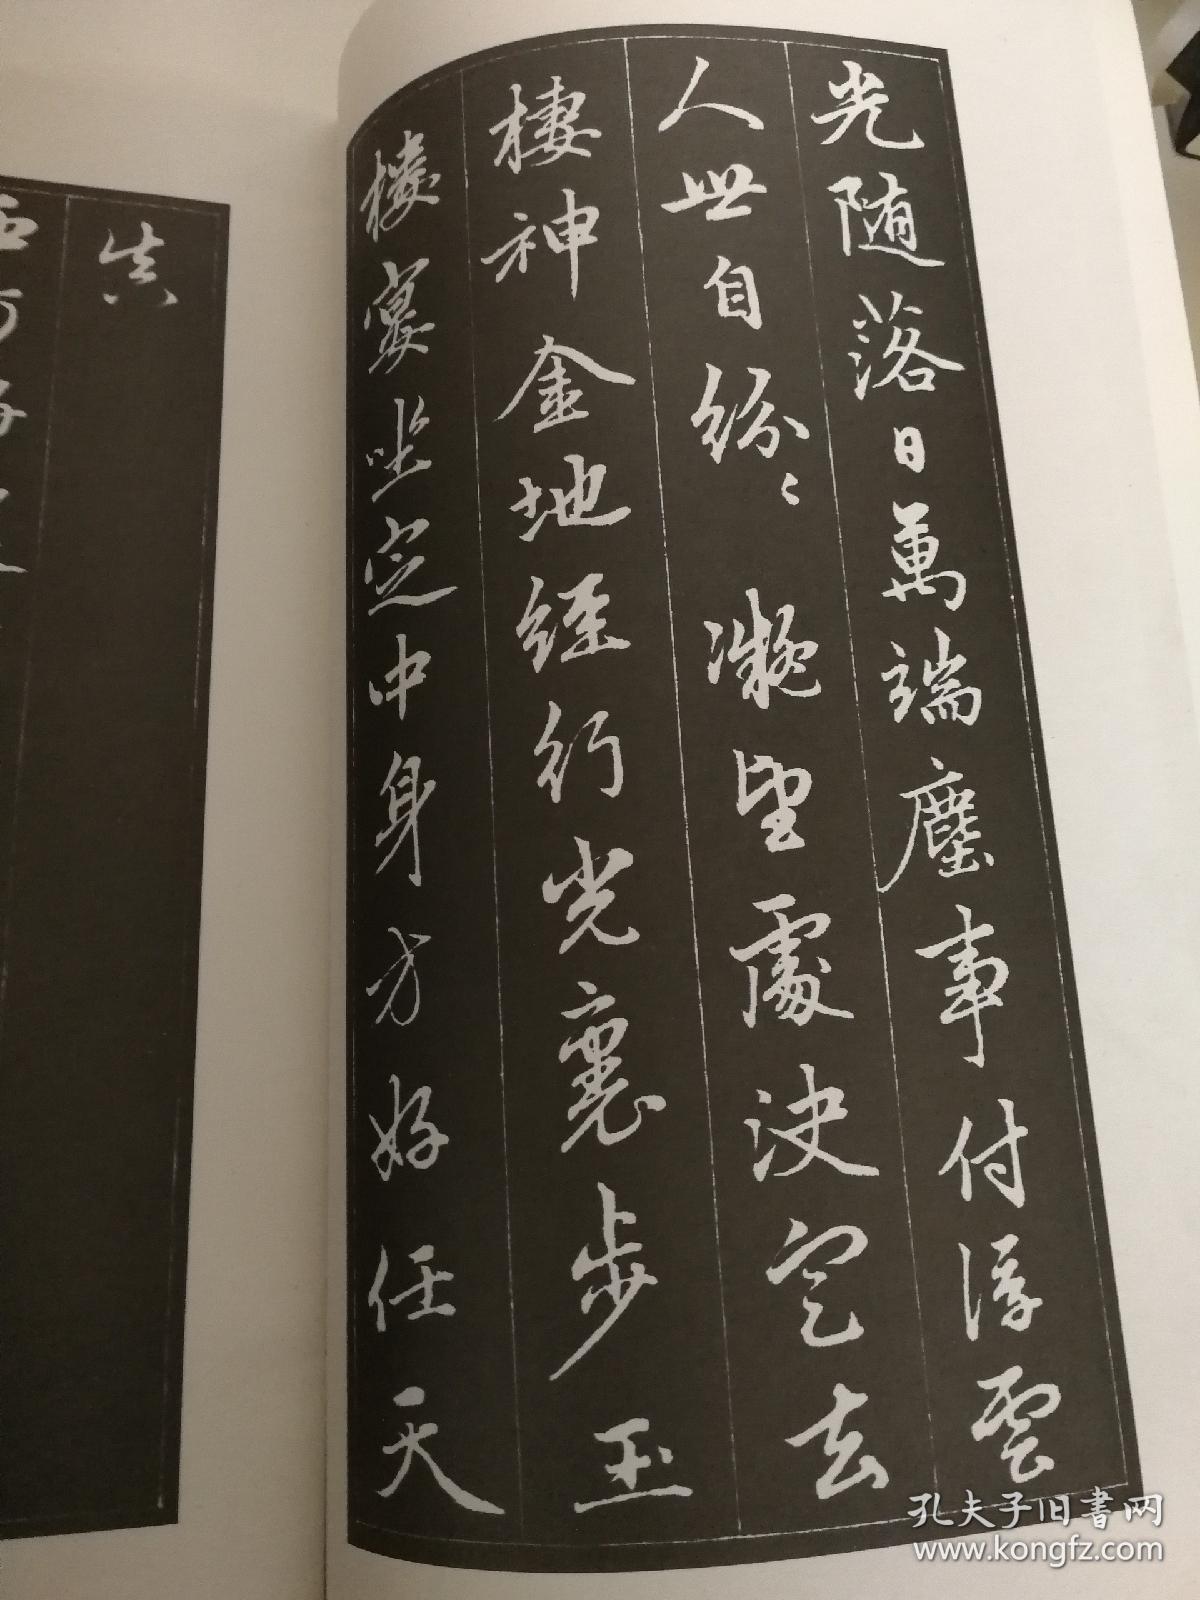 光随落日萬端塵事付浮雲
人世自紛〻凝望處決定去
棲神金地經行光裏步玉
樓宴坐定中身方好任天
真
孔夫子旧書网
www.kongfz.com